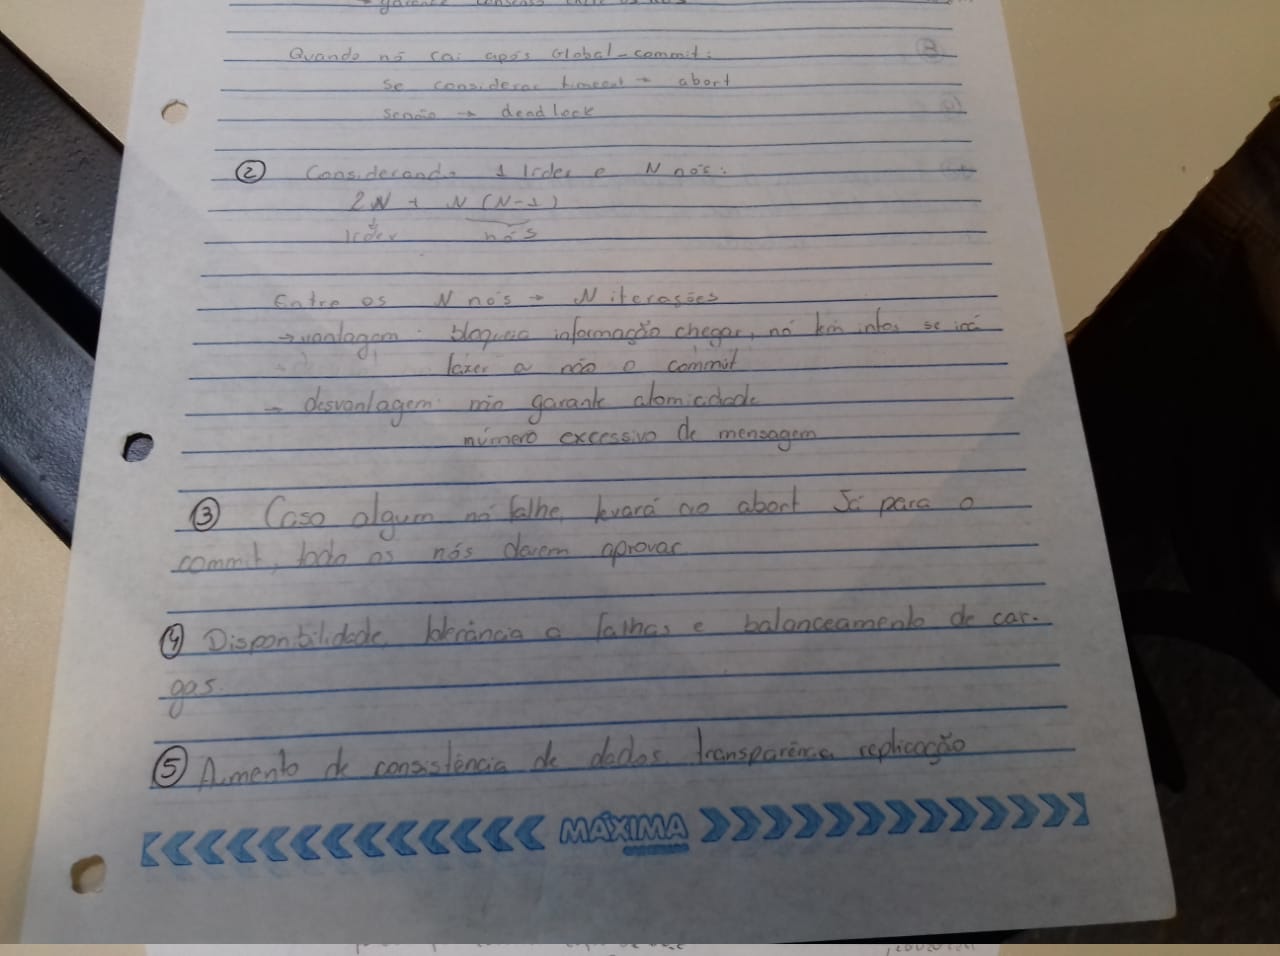 → garante consenso entre os nós
Quando nó cai após Global-commit:
se considerar timeout → abort
senão → deadlock
② Considerando 1 líder e N nós:
2N + N (N-1)
líder nós
Entre os N nós → N iterações
→ vantagem: bloqueia informação chegar, nó tem infos se irá
fazer o não o commit
→ desvantagem: não garante atomicidade
número excessivo de mensagem
③ Caso algum nó falhe, levará ao abort Já para o
commit, todo os nós devem aprovar
④ Disponibilidade, tolerância a falhas e balanceamento de car-
gas.
⑤ Aumento de consistência de dados, transparência replicação
MÁXIMA